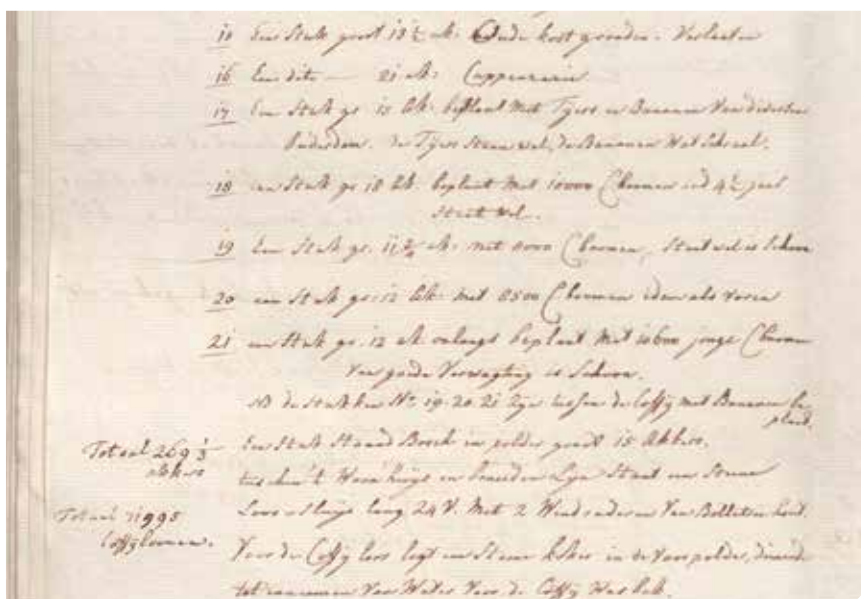 15 Een Stuk groot 13½ ak: Oude kost gronden. Verlaaten
16 Een dito — 21 ak: Cappeweerie
17 Een Stuk gr 15 Ak: beplant Met Tijers en Banannen Van diversen
Ouderdom. de Tijers Staan wel, de Banannen Wat Schraal.
18 een Stuk gr 18 Ak. beplant Met 10000 C boomen oud 4½ jaar
Staat Wel.
19 Een Stuk gr. 11¾ ak: met 8000 C boomen, Staat wel is Schoon
20 een Stuk gr: 12 Ak: Met 8500 C boomen idem als voren
21 een Stuk gr. 12 ak onlangs beplant Met 10600 jonge C boomen
Van goede Verwagting is Schoon.
NB de Stukken No. 19. 20. 21 Zijn tussen de Coffij met Banannen be
plant.
Totaal 269⅓ Een Stuk Staand Bosch in polder groot 15 Akkers.
akkers tusschen 't Woonhuijs en beneeden Lijn Staat een Steene
Loos sluijs lang 24 V. Met 2 Van Bolletrie hout.
Totaal 71995
Coffijboomen. Voor de Coffij loos legt een Steene koker in de Voorpolder, dienende
tot inneemen Van Water Voor de Coffij Was bak.